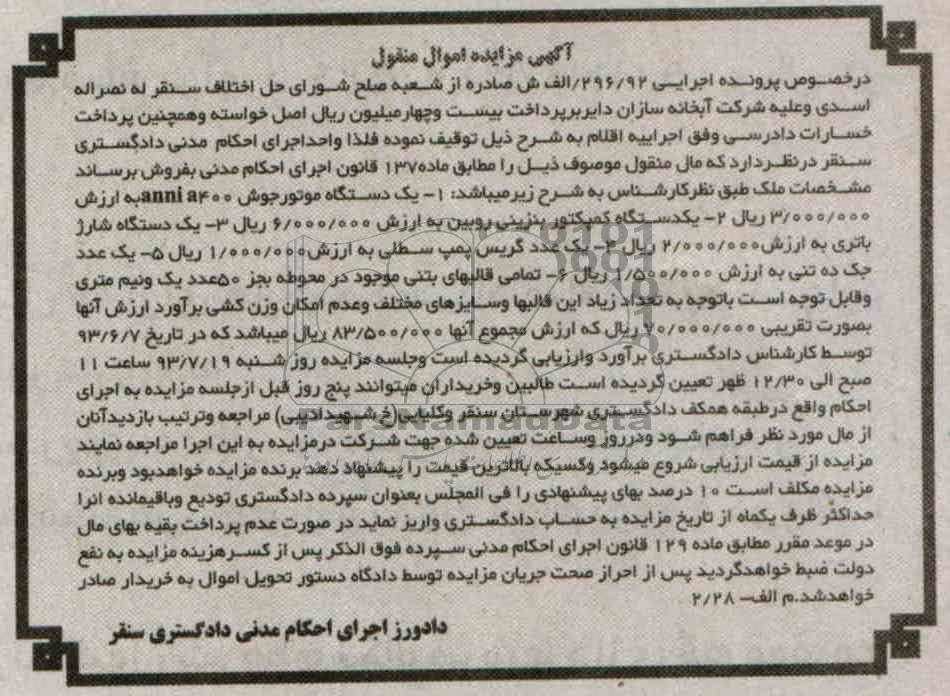 آگهی مزایده اموال منقول
درخصوص پرونده اجرایی ۲۹۶/۹۲/الف ش صادره از شعبه صلح شورای حل اختلاف سنقر له نصراله
اسدی وعلیه شرکت آبخانه سازان دایربرپرداخت بیست وچهارمیلیون ریال اصل خواسته وهمچنین پرداخت
خسارات دادرسی وفق اجراییه اقلام به شرح ذیل توقیف نموده فلذا واحداجرای احکام مدنی دادگستری
سنقر درنظردارد که مال منقول موصوف ذیل را مطابق ماده۱۳۷ قانون اجرای احکام مدنی بفروش برساند
مشخصات ملک طبق نظرکارشناس به شرح زیرمیباشد: ۱- یک دستگاه موتورجوش anni a۴۰۰به ارزش
۳/۰۰۰/۰۰۰ ریال ۲- یکدستگاه کمپکتور بنزینی روبین به ارزش ۶/۰۰۰/۰۰۰ ریال ۳- یک دستگاه شارژ
باتری به ارزش۲/۰۰۰/۰۰۰ ریال ۴- یک عدد گریس پمپ سطلی به ارزش۱/۰۰۰/۰۰۰ ریال ۵- یک عدد
جک ده تنی به ارزش ۱/۵۰۰/۰۰۰ ریال ۶- تمامی قالبهای بتنی موجود در محوطه بجز ۵۰عدد یک ونیم متری
وقابل توجه است باتوجه به تعداد زیاد این قالبها وسایزهای مختلف وعدم امکان وزن کشی برآورد ارزش آنها
بصورت تقریبی ۷۰/۰۰۰/۰۰۰ ریال که ارزش مجموع آنها ۸۳/۵۰۰/۰۰۰ ریال میباشد که در تاریخ ۹۳/۶/۷
توسط کارشناس دادگستری برآورد وارزیابی گردیده است وجلسه مزایده روز شنبه ۹۳/۷/۱۹ ساعت ۱۱
صبح الی ۱۲/۳۰ ظهر تعیین گردیده است طالبین وخریداران میتوانند پنج روز قبل ازجلسه مزایده به اجرای
احکام واقع درطبقه همکف دادگستری شهرستان سنقر وکلیایی(خ شهیدادیبی) مراجعه وترتیب بازدیدآنان
از مال مورد نظر فراهم شود ودرروز وساعت تعیین شده جهت شرکت درمزایده به این اجرا مراجعه نمایند
مزایده از قیمت ارزیابی شروع میشود وکسیکه بالاترین قیمت را پیشنهاد دهد برنده مزایده خواهدبود وبرنده
مزایده مکلف است ۱۰ درصد بهای پیشنهادی را فی المجلس بعنوان سپرده دادگستری تودیع وباقیمانده انرا
حداکثر ظرف یکماه از تاریخ مزایده به حساب دادگستری واریز نماید در صورت عدم پرداخت بقیه بهای مال
در موعد مقرر مطابق ماده ۱۲۹ قانون اجرای احکام مدنی سپرده فوق الذکر پس از کسرهزینه مزایده به نفع
دولت ضبط خواهدگردید پس از احراز صحت جریان مزایده توسط دادگاه دستور تحویل اموال به خریدار صادر
خواهدشد.م الف- ۲/۲۸
دادورز اجرای احکام مدنی دادگستری سنقر
ParsNamadData